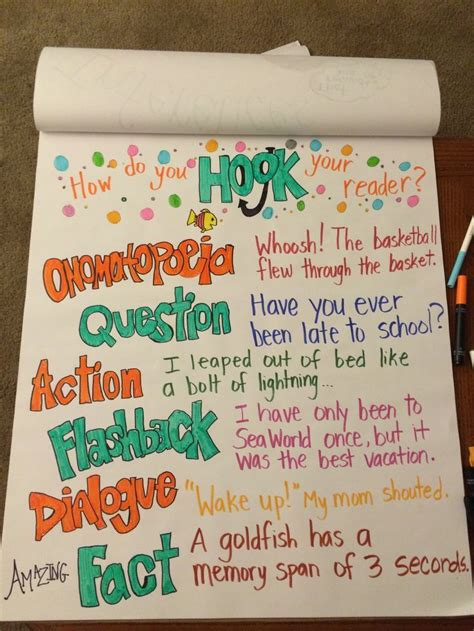 How do you HOOK your reader?
Onomatopoeia
Whoosh! The basketball
flew through the basket.
Question
Have you ever
been late to school?
Action
I leaped out of bed like
a bolt of lightning...
Flashback
I have only been to
SeaWorld once, but it
was the best vacation.
Dialogue
"Wake up!" My mom shouted.
Amazing Fact
A goldfish has a
memory span of 3 seconds.